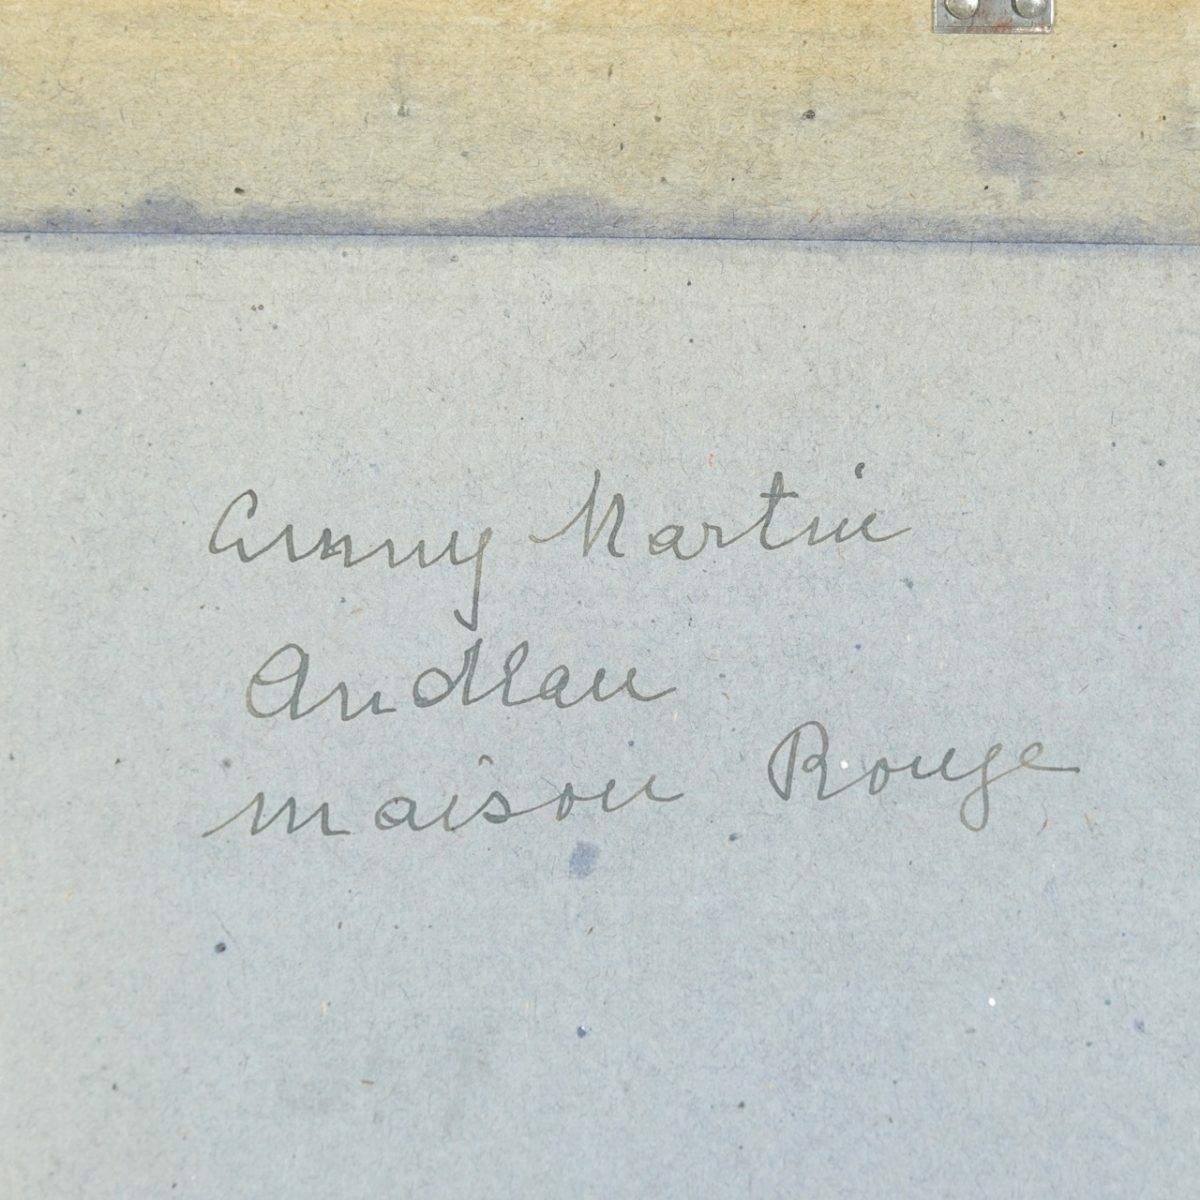 Anny Martin
Andlau
maison Rouge